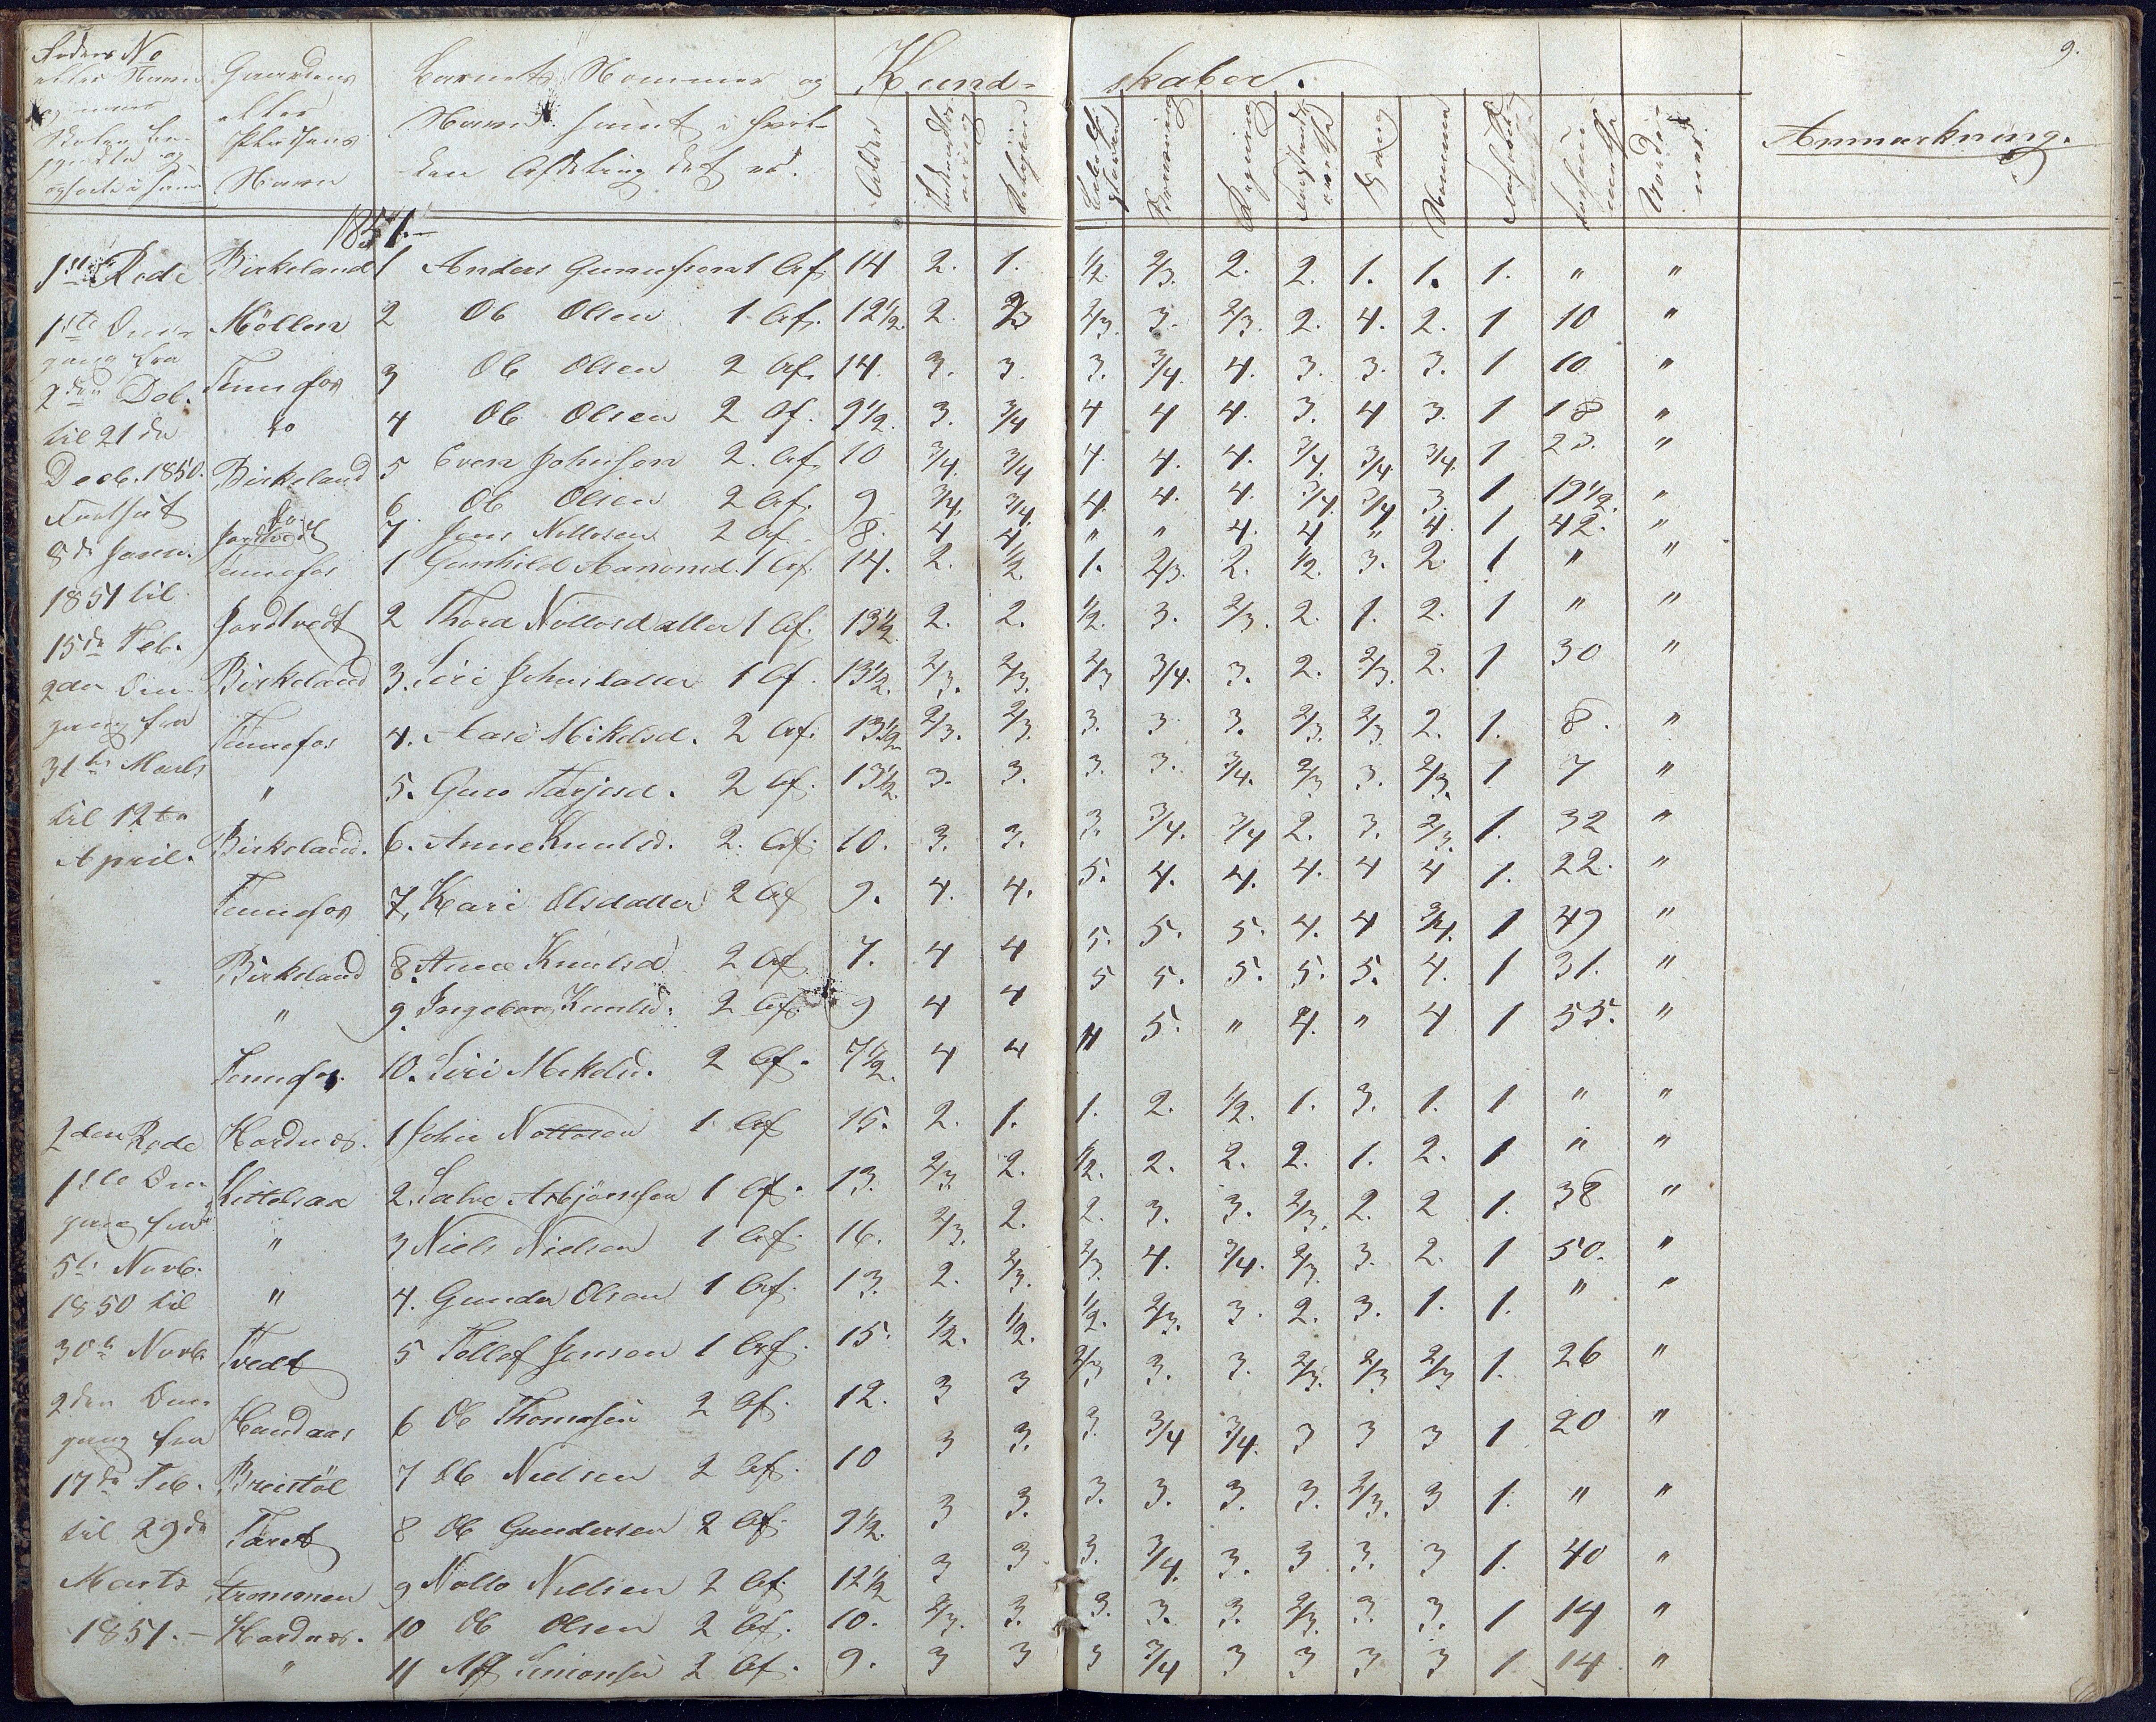 9.
Rodens No
eller Navn
Skolen be-
og
Gaardens
eller
Pladsens
Navn
Barnets Nommer og
Navn samt i hvil-
ken Afdeling det er.
Kund- skaber.
Alder
Religion
Skrivning
Regning
Sang
Anmærkning.
1851.
1ste Rode Birkeland 1 Anders Gunufsen 1 Af. 14 2. 1. 1/2. 2/3. 2. 2. 1. 1. 1. " "
1ste Om- Möllen 2 Ole Olsen 1 Af. 12 1/2. 2. 2/3 2/3. 3. 2/3. 2. 4. 2. 1 10 "
gang fra
2den Deb. Tennefos 3 Ole Olsen 2 Af. 14. 3. 3. 3. 3/4. 4. 3. 3. 3. 1 10 "
til 21de do 4 Ole Olsen 2 Af. 9 1/2. 3. 3/4 4 4 4. 3. 4 3. 1 18 "
Decb. 1850. Birkeland 5 Even Johnsen 2. Af. 10 3/4. 3/4 4. 4. 4. 3/4. 3/4. 3/4. 1 23. "
Fortsat do 6 Ole Olsen 2 Af. 9 3/4. 3/4. 4. 4. 4. 3/4. 3/4 3. 1 19 1/2. "
8de Janr. Jordtvedt 7 Jens Nottosen 2 Af. 8. 4 4 " " 4. 4 " 4. 1 42. "
Tennefos 1 Gunhild Aanonsd. 1 Af. 14. 2. 1/2. 1. 2/3. 2. 1/2. 3. 2. 1 " "
1851 til Jordtvedt 2 Thora Nottosdatter 1 Af. 13 1/2. 2. 2. 1/2. 3. 2/3. 2. 1. 2. 1 " "
15de Feb.
2den Om- Birkeland 3. Siri Johnsdatter 1 Af. 13 1/2. 2/3. 2/3. 2/3 3/4. 3. 2. 2/3. 2. 1 30 "
gang fra Tennefos 4. Aase Mikelsd. 2 Af. 13 1/2. 2/3. 2/3. 3. 3 3. 2/3. 2/3. 2. 1. 8. "
31te Marts " 5. Guro Tarjesd. 2 Af. 13 1/2. 3. 3. 3. 3. 3/4. 2/3 3. 2/3. 1 7 "
til 12te
April. Birkeland. 6. Anne Knutsd. 2. Af. 10. 3. 3. 3. 3/4. 3/4 2. 3. 2/3. 1. 32 "
Tennefos 7. Kari Olsdatter 2 Af 9. 4. 4. 5. 4. 4. 4. 4 4 1. 22. "
Birkeland 8. Anne Knutsd 2 Af. 7. 4 4 5. 5. 5. 4. 4 3/4. 1 49 "
" 9. Ingeborg Knutsd. 2 Af. 9 4 4 5 5. 5. 5. 5. 4. 1 31. "
Tennefos. 10. Siri Mikelsd. 2 Af. 7 1/2. 4 4 " 5. " 4. " 4 1 55. "
2den Rode Hordnes. 1 John Nottosen 1 Af 15. 2. 1. 1. 2. 1/2. 1. 3. 1. 1 " "
1ste Om- Kittelsaa 2. Salve Asbjörnsen 1 Af. 13. 2/3. 2. 1/2. 2. 2. 2. 1. 2. 1 " "
gang fra " 3 Niels Nielsen 1 Af. 16. 2/3. 2. 2. 3. 3. 2/3. 2. 2 1. 38 "
5te Novb.
1850 til " 4. Gunder Olsen 1 Af. 13. 2. 2/3. 2/3. 4. 3/4. 2/3. 3. 2. 1 50. "
30te Novb. Tvedt 5 Tollef Jensen 1 Af. 15. 1/2. 1/2. 1/2. 2/3. 3. 2. 3. 1. 1. " "
2den Om-
gang fra Haudaas 6 Ole Thomesen 2 Af. 12. 3 3 2/3 3. 3. 2/3. 2/3 2/3 1. 26 "
17de Feb. Breistöl 7 Ole Nielsen 2 Af. 10 3 3. 3. 3/4 3/4. 3 3 3 1 20 "
til 29de Taret 8 Ole Gundersen 2 Af. 9 1/2. 3 3. 3. 3. 3. 3. 2/3. 3 1. " "
Marts Strömmen 9 Notto Nielsen 2 Af. 12 1/2 3 3 3. 3/4. 3. 3 3. 3 1. 40 "
1851. Hordnes. 10 Ole Olsen 2 Af. 10. 2/3. 3. 3. 3. 3. 2/3. 3. 3. 1 14 "
" 11 Alf Simonsen 2 Af. 9. 3 3 3 3/4 3 3 3 3 1 14 "